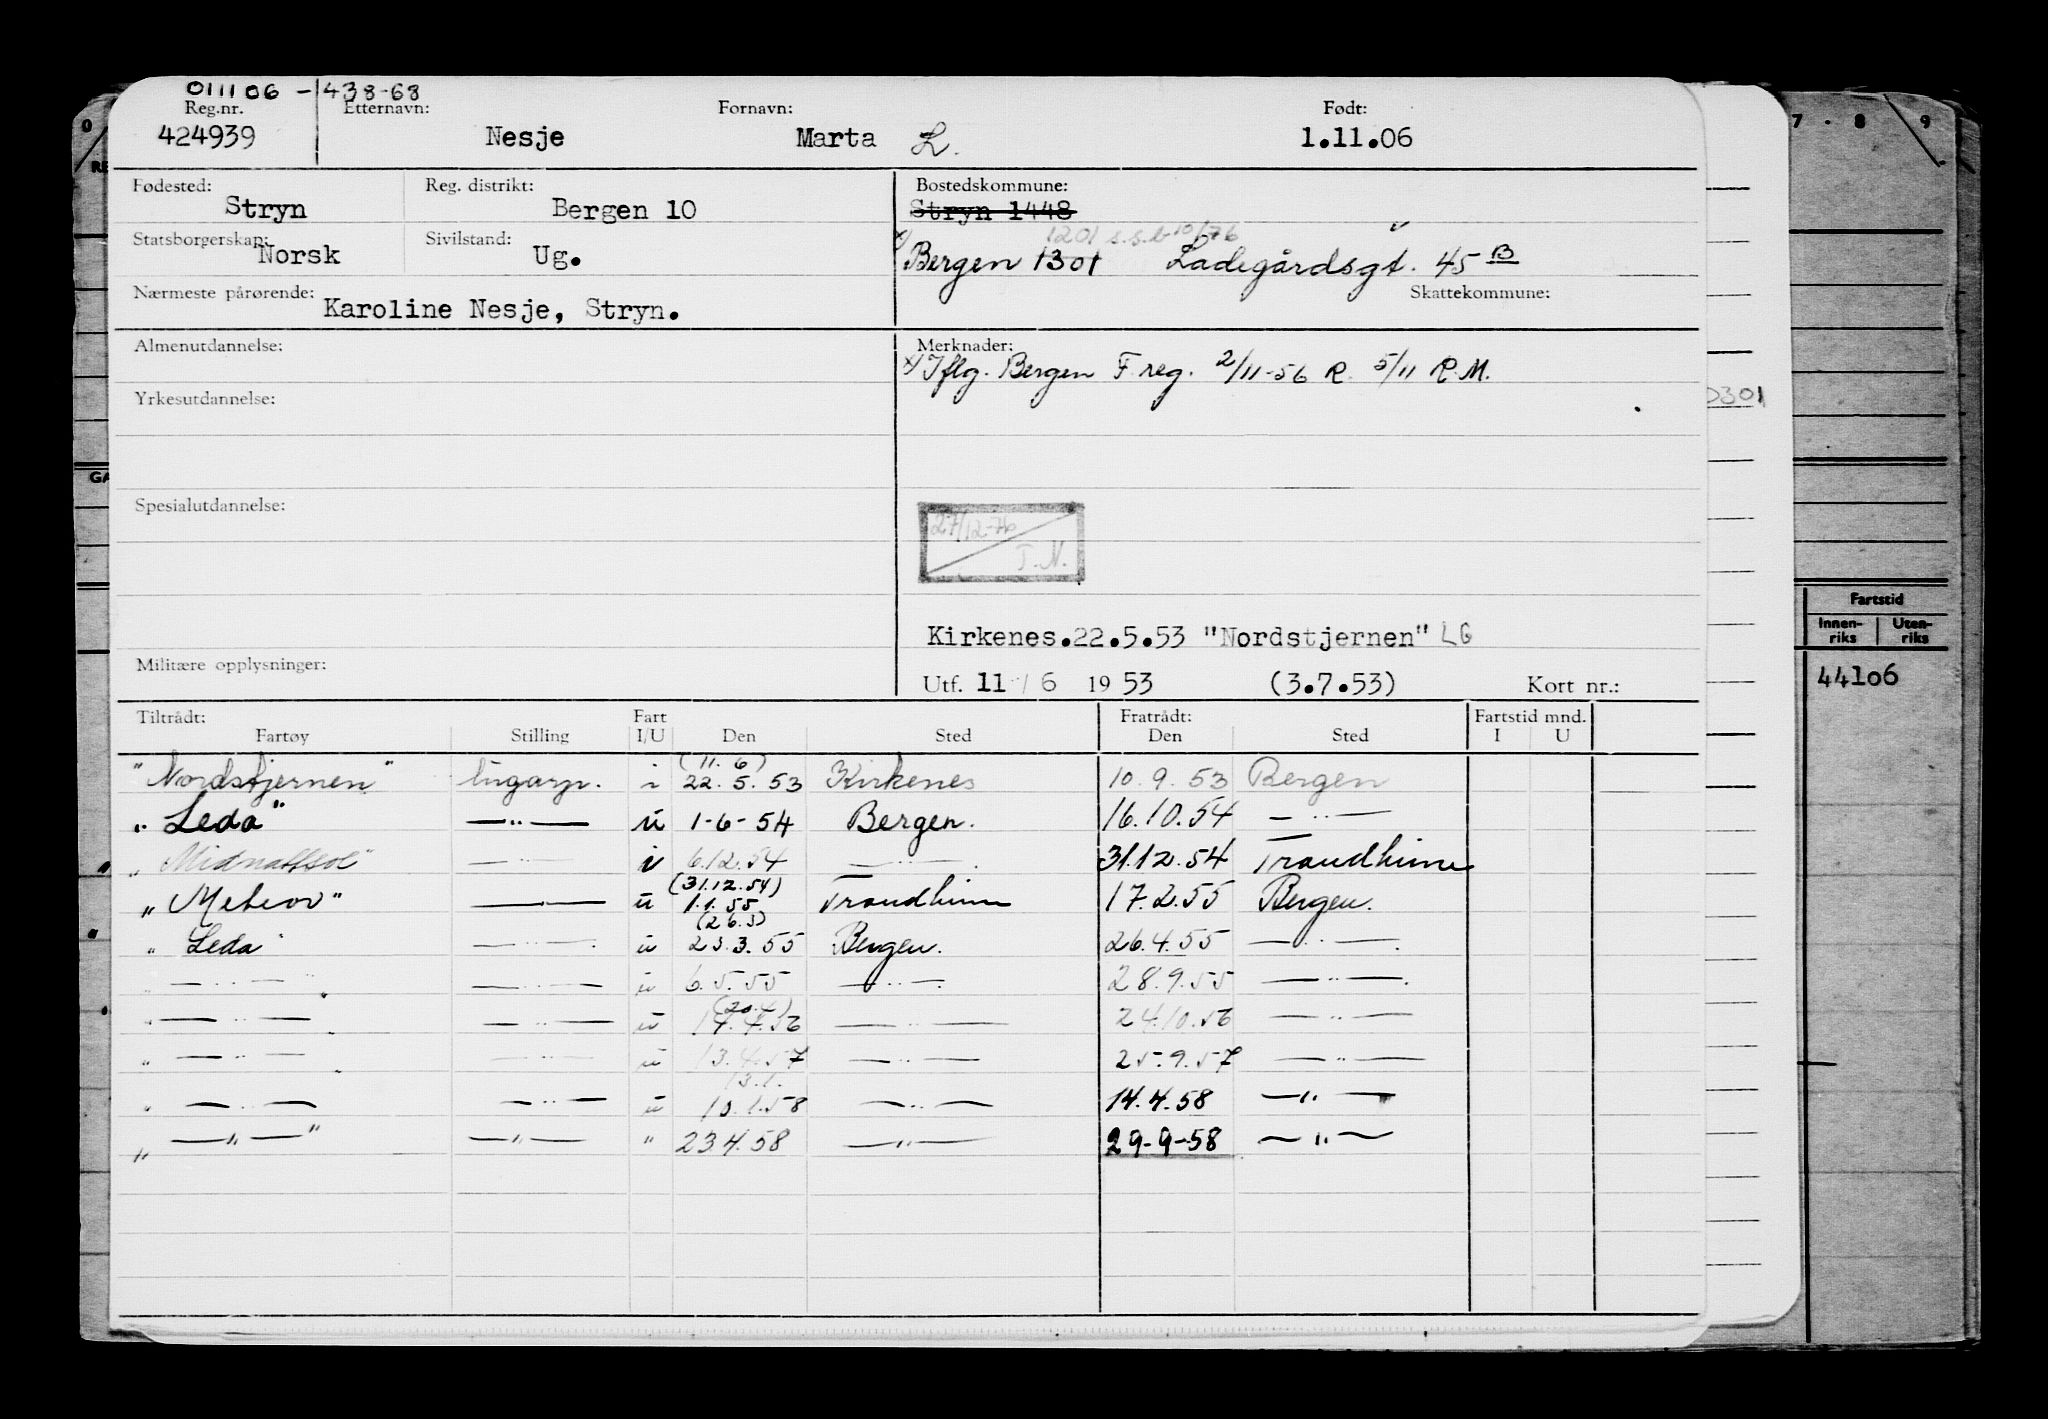 011106 - 438-68
Reg.nr. Etternavn: Fornavn: Født:
424939 Nesje Marta L. 1.11.06
Fødested: Reg. distrikt: Bostedskommune:
Stryn Bergen 10 Stryn 1448
1201 s.s.b 10/76
Statsborgerskap: Sivilstand:
Norsk Ug. x) Bergen 1301 Ladegårdsgt. 45 B
Nærmeste pårørende: Skattekommune:
Karoline Nesje, Stryn.
Almenutdannelse: Merknader:
x) Iflg. Bergen F.reg. 2/11-56 R. 5/11 R.M.
Yrkesutdannelse:
0301
Spesialutdannelse:
27/12-76
T.N.
Kirkenes.22.5.53 "Nordstjernen" LG
Militære opplysninger:
Utf. 11/6 1953 (3.7.53) Kort nr.:
Tiltrådt: Fart Fratrådt: Fartstid mnd.
Fartøy Stilling I/U Den Sted Den Sted I U
(11.6)
"Nordstjernen" lugarp. i 22.5.53 Kirkenes 10.9.53 Bergen
"Leda" —"— u 1-6-54 Bergen. 16.10.54 —"—
"Midnattsol" —"— i 6.12.54 —"— 31.12.54 Trondheim
(31.12.54)
"Meteor" —"— u 1.1.55 Trondheim 17.2.55 Bergen.
(26.3)
"Leda" —"— u 23.3.55 Bergen. 26.4.55 —"—
"—"—" —"— u 6.5.55 —"— 28.9.55 —"—
(20.4)
"—"—" —"— u 14.4.56 —"— 24.10.56 —"—
"—"—" —"— u 13.4.57 —"— 25.9.57 —"—
13.1.
"—"—" —"— u 10.1.58 —"— 14.4.58 —"—
"—"—" —"— " 23.4.58 —"— 29-9-58 —"—
7 - 8 9
Fartstid
Innen-riks Uten-riks
44106